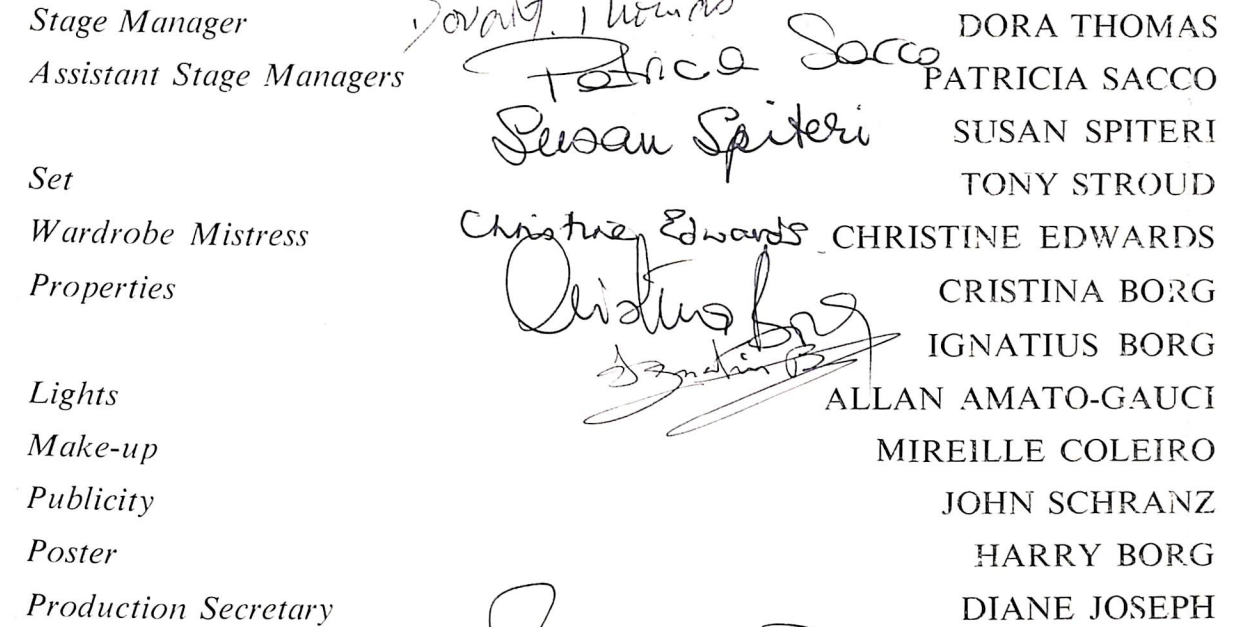 Stage Manager Thomas DORA THOMAS
Assistant Stage Managers Patricia Sacco PATRICIA SACCO
Susan Spiteri SUSAN SPITERI
Set TONY STROUD
Wardrobe Mistress Christine Edwards CHRISTINE EDWARDS
Properties Cristina Borg CRISTINA BORG
Ignatius B IGNATIUS BORG
Lights ALLAN AMATO-GAUCI
Make-up MIREILLE COLEIRO
Publicity JOHN SCHRANZ
Poster HARRY BORG
Production Secretary DIANE JOSEPH